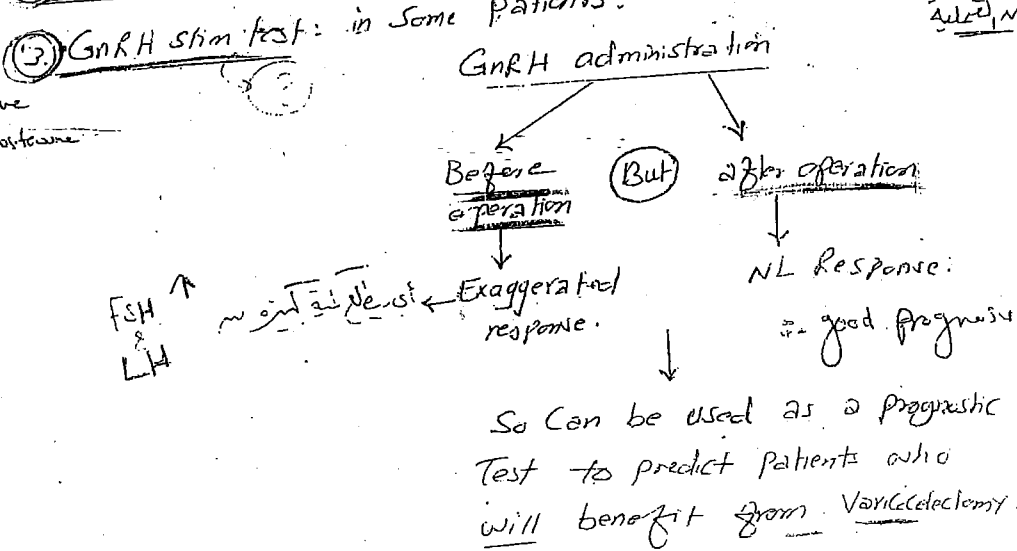 ③ GnRH stim. test: in Some patients.
GnRH administration
Before operation
But
after operation
FSH & LH ↑
أى يطلع كمية كبيرة من ← Exaggerated response.
NL Response:
∴ good prognosis
So Can be used as a prognostic
Test to predict patients who
will benefit from Varicocelectomy.